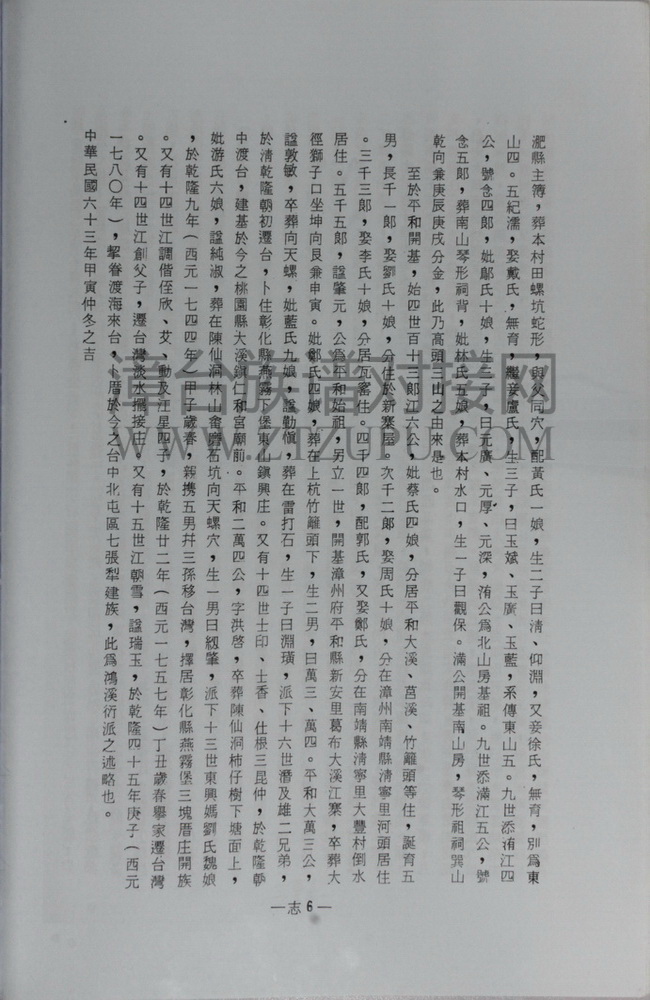 淝縣主簿，葬本村田螺坑蛇形，與父同穴，配黃氏一娘，生二子曰淸、仰淵，又妾徐氏，無育，別為東
山四。五紀濡，娶戴氏，無育，繼妾盧氏，生三子，曰玉斌、玉廣、玉藍，系傳東山五。九世忝洧江四
公，號念四郎，妣鄔氏十娘，生三子，曰元廣、元厚、元深，洧公為北山房基祖。九世忝滿江五公，號
念五郎，葬南山琴形祠背，妣林氏五娘，葬本村水口，生一子曰觀保。滿公開基南山房，琴形祖祠巽山
乾向兼庚辰庚戌分金，此乃高頭三山之由來是也。
至於平和開基，始四世百十三郎江六公，妣蔡氏四娘，分居平和大溪、莒溪、竹籬頭等住，誕育五
男，長千一郎，娶劉氏十娘，分住於新寨屋。次千二郎，娶周氏十娘，分在漳州南靖縣淸寧里河頭居住
。三千三郎，娶李氏十娘，分居瓦窰住。四千四郎，配郭氏，又娶鄭氏，分在南靖縣淸寧里大豐村倒水
居住。五千五郎，諡肇元，公為平和始祖，另立一世，開基漳州府平和縣新安里葛布大溪江寨，卒葬大
徑獅子口坐坤向艮兼申寅。妣鄭氏四娘，葬在上杭竹籬頭下，生二男，曰萬三、萬四。平和大萬三公，
諡敦敏，卒葬向天螺，妣藍氏九娘，諡勤愼，葬在雷打石，生一子曰淵璜，派下十六世潘及雄二兄弟，
於淸乾隆朝初遷台，卜住彰化縣燕霧下堡東山鎭興庄。又有十四世士印、士香、仕根三昆仲，於乾隆朝
中渡台，建基於今之桃園縣大溪鎭仁和宮廟前。平和二萬四公，字洪啓，卒葬陳仙洞柿仔樹下塘面上，
妣游氏六娘，諡純淑，葬在陳仙洞林山畬磨石坑向天螺穴，生一男曰紉肇，派下十三世東興媽劉氏魏娘
，於乾隆九年（西元一七四四年）甲子歲春，親携五男幷三孫移台灣，擇居彰化縣燕霧堡三塊厝庄開族
。又有十四世江調偕侄欣、艾、動及汪星四子，於乾隆廿二年（西元一七五七年）丁丑歲春舉家遷台灣
。又有十四世江創父子，遷台灣淡水擺接庄。又有十五世江朝雪，諡瑞玉，於乾隆四十五年庚子（西元
一七八〇年），挈眷渡海來台，卜厝於今之台中北屯區七張犁建族，此為鴻溪衍派之述略也。
中華民國六十三年甲寅仲冬之吉
—志 6—
漳台族譜对接网
WWW.ZTZUPU.COM